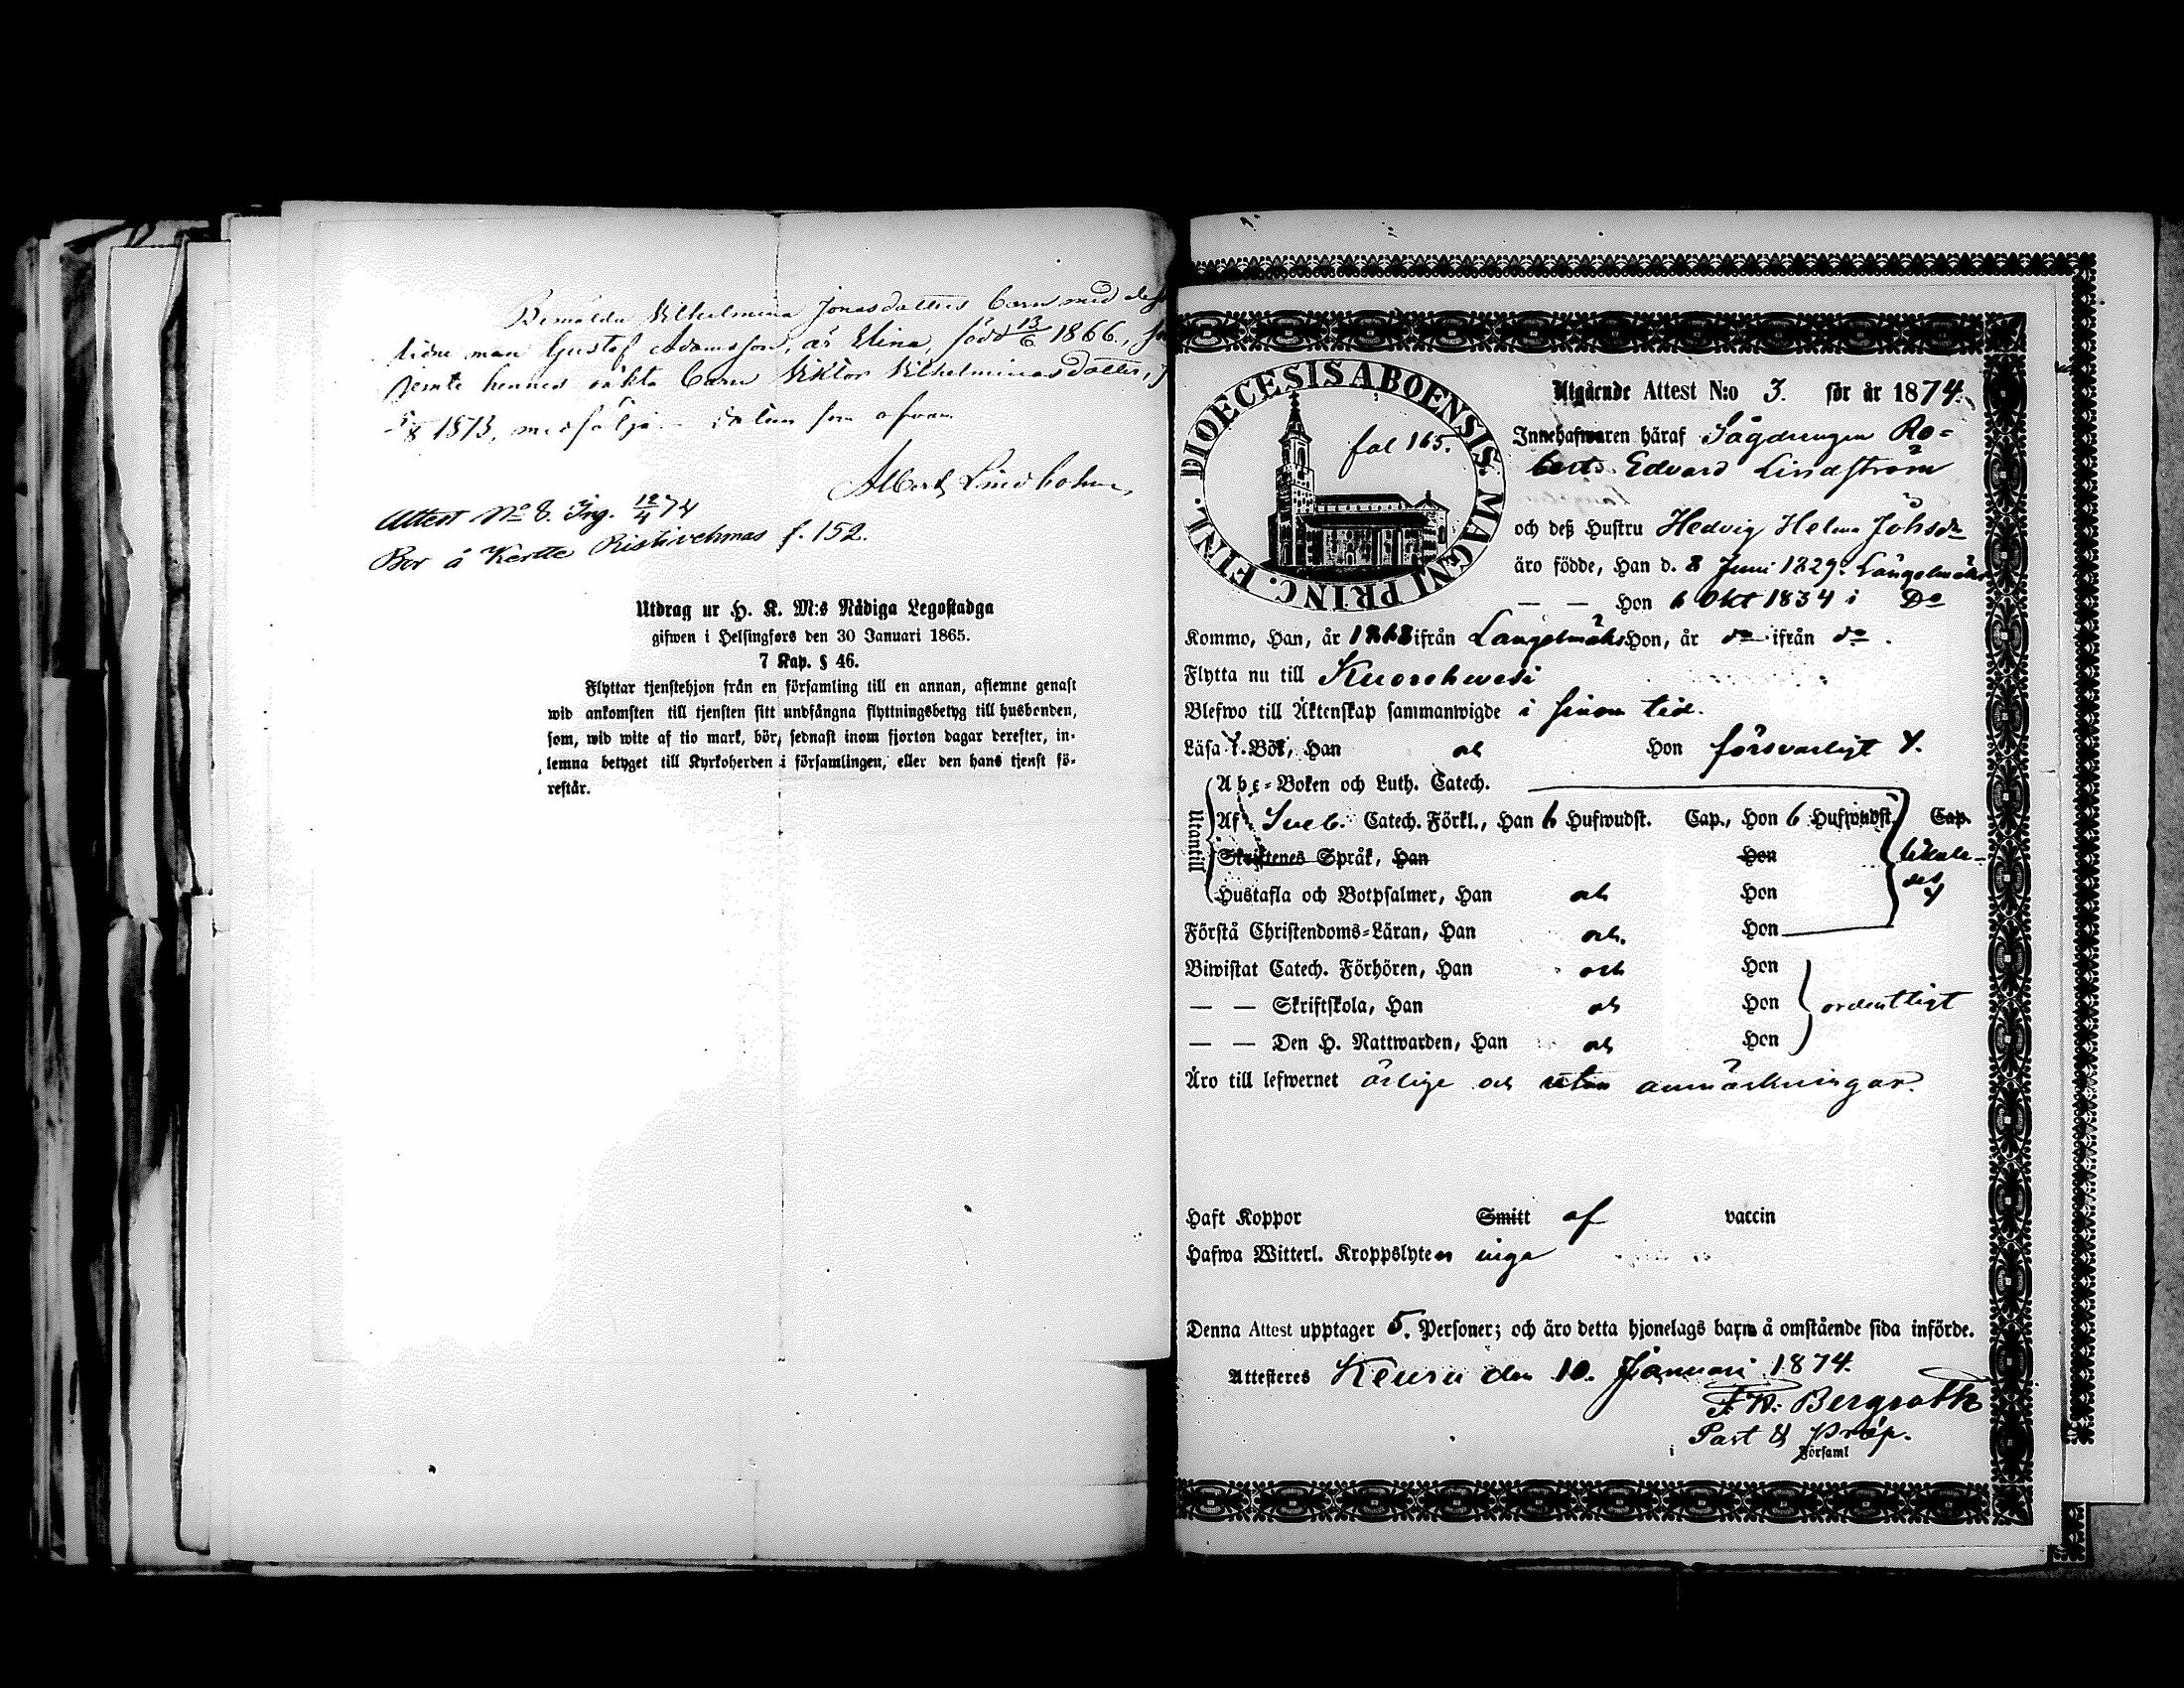 Bemälda Vilhelmina Jonasdotters barn med
man Gustaf Adamsson, är Elina, född 13/6 1866.,
jemte hennes oäkta barn Viktor Vilhelminasdotter,
5/8 1873, medfölja. Datum som ofvan
Albert Lindholm
Attest No 8. Ing. 12/4 74
Bor å Kertte Ristivehmas f. 152.
Utdrag ur H. K. M:s Nådiga Legostadga
gifwen i Helsingfors den 30 Januari 1865.
7 Kap. § 46.
Flyttar tjenstehjon från en församling till en annan, aflemne genast
wid ankomsten till tjensten sitt undfångna flyttningsbetyg till husbonden,
som, wid wite af tio mark, bör, sednast inom fjorton dagar derefter, in-
lemna betyget till Kyrkoherden i församlingen, eller den hans tjenst fö-
restår.
DIOECESIS ABOENSIS. MAGNI PRINC. FINL.
fol 165.
Utgående Attest N:o 3. för år 1874.
Innehafwaren häraf Sågdrengen Ro-
bert Edvard Lindström
och deß Hustru Hedvig Helena Johsdr
äro födde, Han d. 8 Juni 1829. Längelmäki
— — Hon 6 Okt 1834 i Do
Kommo, Han, år 1868 ifrån Längelmäki Hon, år do ifrån do.
Flytta nu till Kuorehwesi
Blefwo till Äktenskap sammanwigde i sinom tid.
Läsa i Bok, Han och Hon försvarligt
Utantill
Abc-Boken och Luth. Catech.
Af Sveb. Catech. Förkl., Han 6 Hufwudst. Cap., Hon 6 Hufwudst. Cap.
Skriftenes Språk, Han Hon likale-
des
Hustafla och Botpsalmer, Han och Hon
Förstå Christendoms-Läran, Han och Hon
Biwistat Catech. Förhören, Han och Hon
— — Skriftskola, Han och Hon ordentligt
— — Den H. Nattwarden, Han och Hon
Äro till lefwernet ärlige och utan anmärkningar.
Haft Koppor Smitt af vaccin
Hafwa Witterl. Kroppslyten inga
Denna Attest upptager 5. Personer; och äro detta hjonelags barn å omstående sida införde.
Attesteres Keuru den 10. Januari 1874.
F. W. Bergroth
Past & Prop.
i Församl